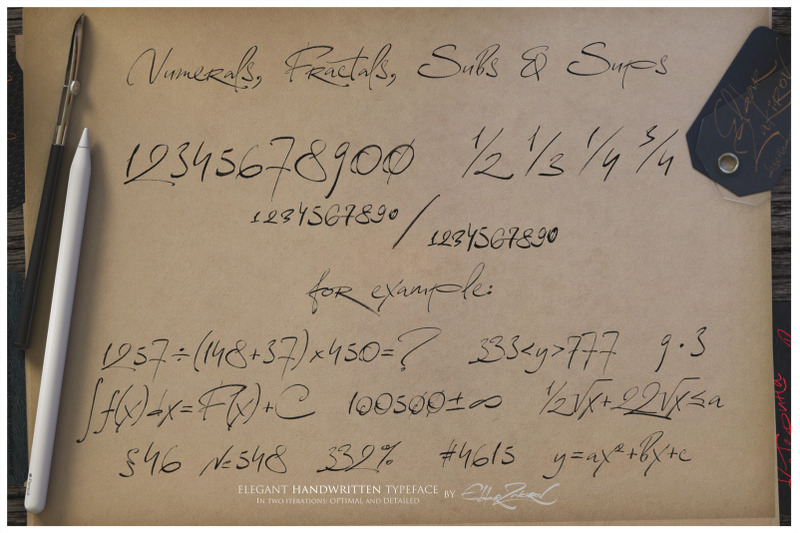 Numerals, Fractals, Subs & Sups
12345678900 1/2 1/3 1/4 3/4
1234567890 / 1234567890
for example:
1257÷(148+37)×450=? 333<y>777 9·3
∫f(x)dx=F(x)+C 100500±∞ ½√x+22√x≤a
§46 №548 332% #4615 y=ax²+bx+c
ELEGANT HANDWRITTEN TYPEFACE BY Eldar Zakirov
IN TWO ITERATIONS: OPTIMAL AND DETAILED
Eldar
Zakirov